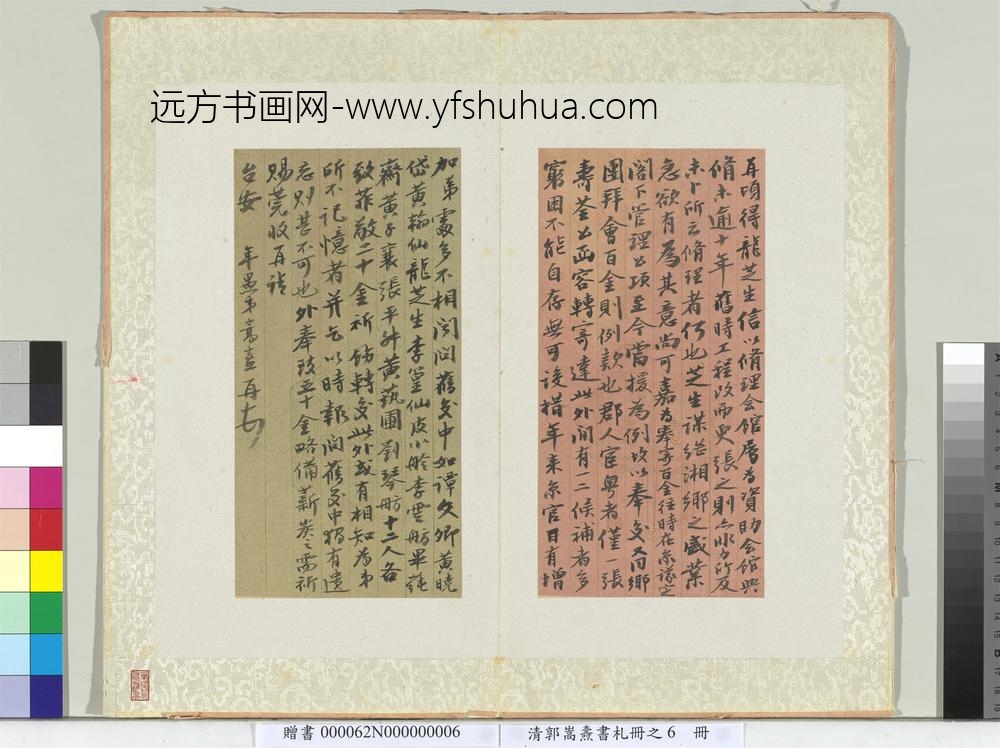 远方书画网-www.yfshuhua.com
再頃得龍芝生信以脩理会館屬為資助会館興
脩未逾十年舊時工程改而更張之則亦水力所及
未卜所云脩理者何也芝生謀继湘鄉之盛業
急欲有為其意尚可嘉為奉寄百金往時在京議定
閤下管理公項至今當援為例故以奉交又同鄉
團拜會百金則例款也郡人宦粤者僅一張
壽荃公函容轉寄達此外間有二候補者多
窮困不能自存無可設措年来京官日有增
加弟處多不相聞問舊交中如譚文卿黄曉
岱黄翰仙龍芝生李篁仙皮小舲李雲舫畢莼
齋黄子襄張平叔黄蓺圃劉琴舫十二人各
致菲敬二十金祈飭轉交此外或有相知為弟
所不记憶者并乞以時報聞舊交中猶有遺
忘則甚不可也外奉致五十金略備薪炭之需祈
賜莞收再請
台安 年愚弟嵩燾再頓
贈書 000062N000000006
清郭嵩燾書札冊之 6 冊